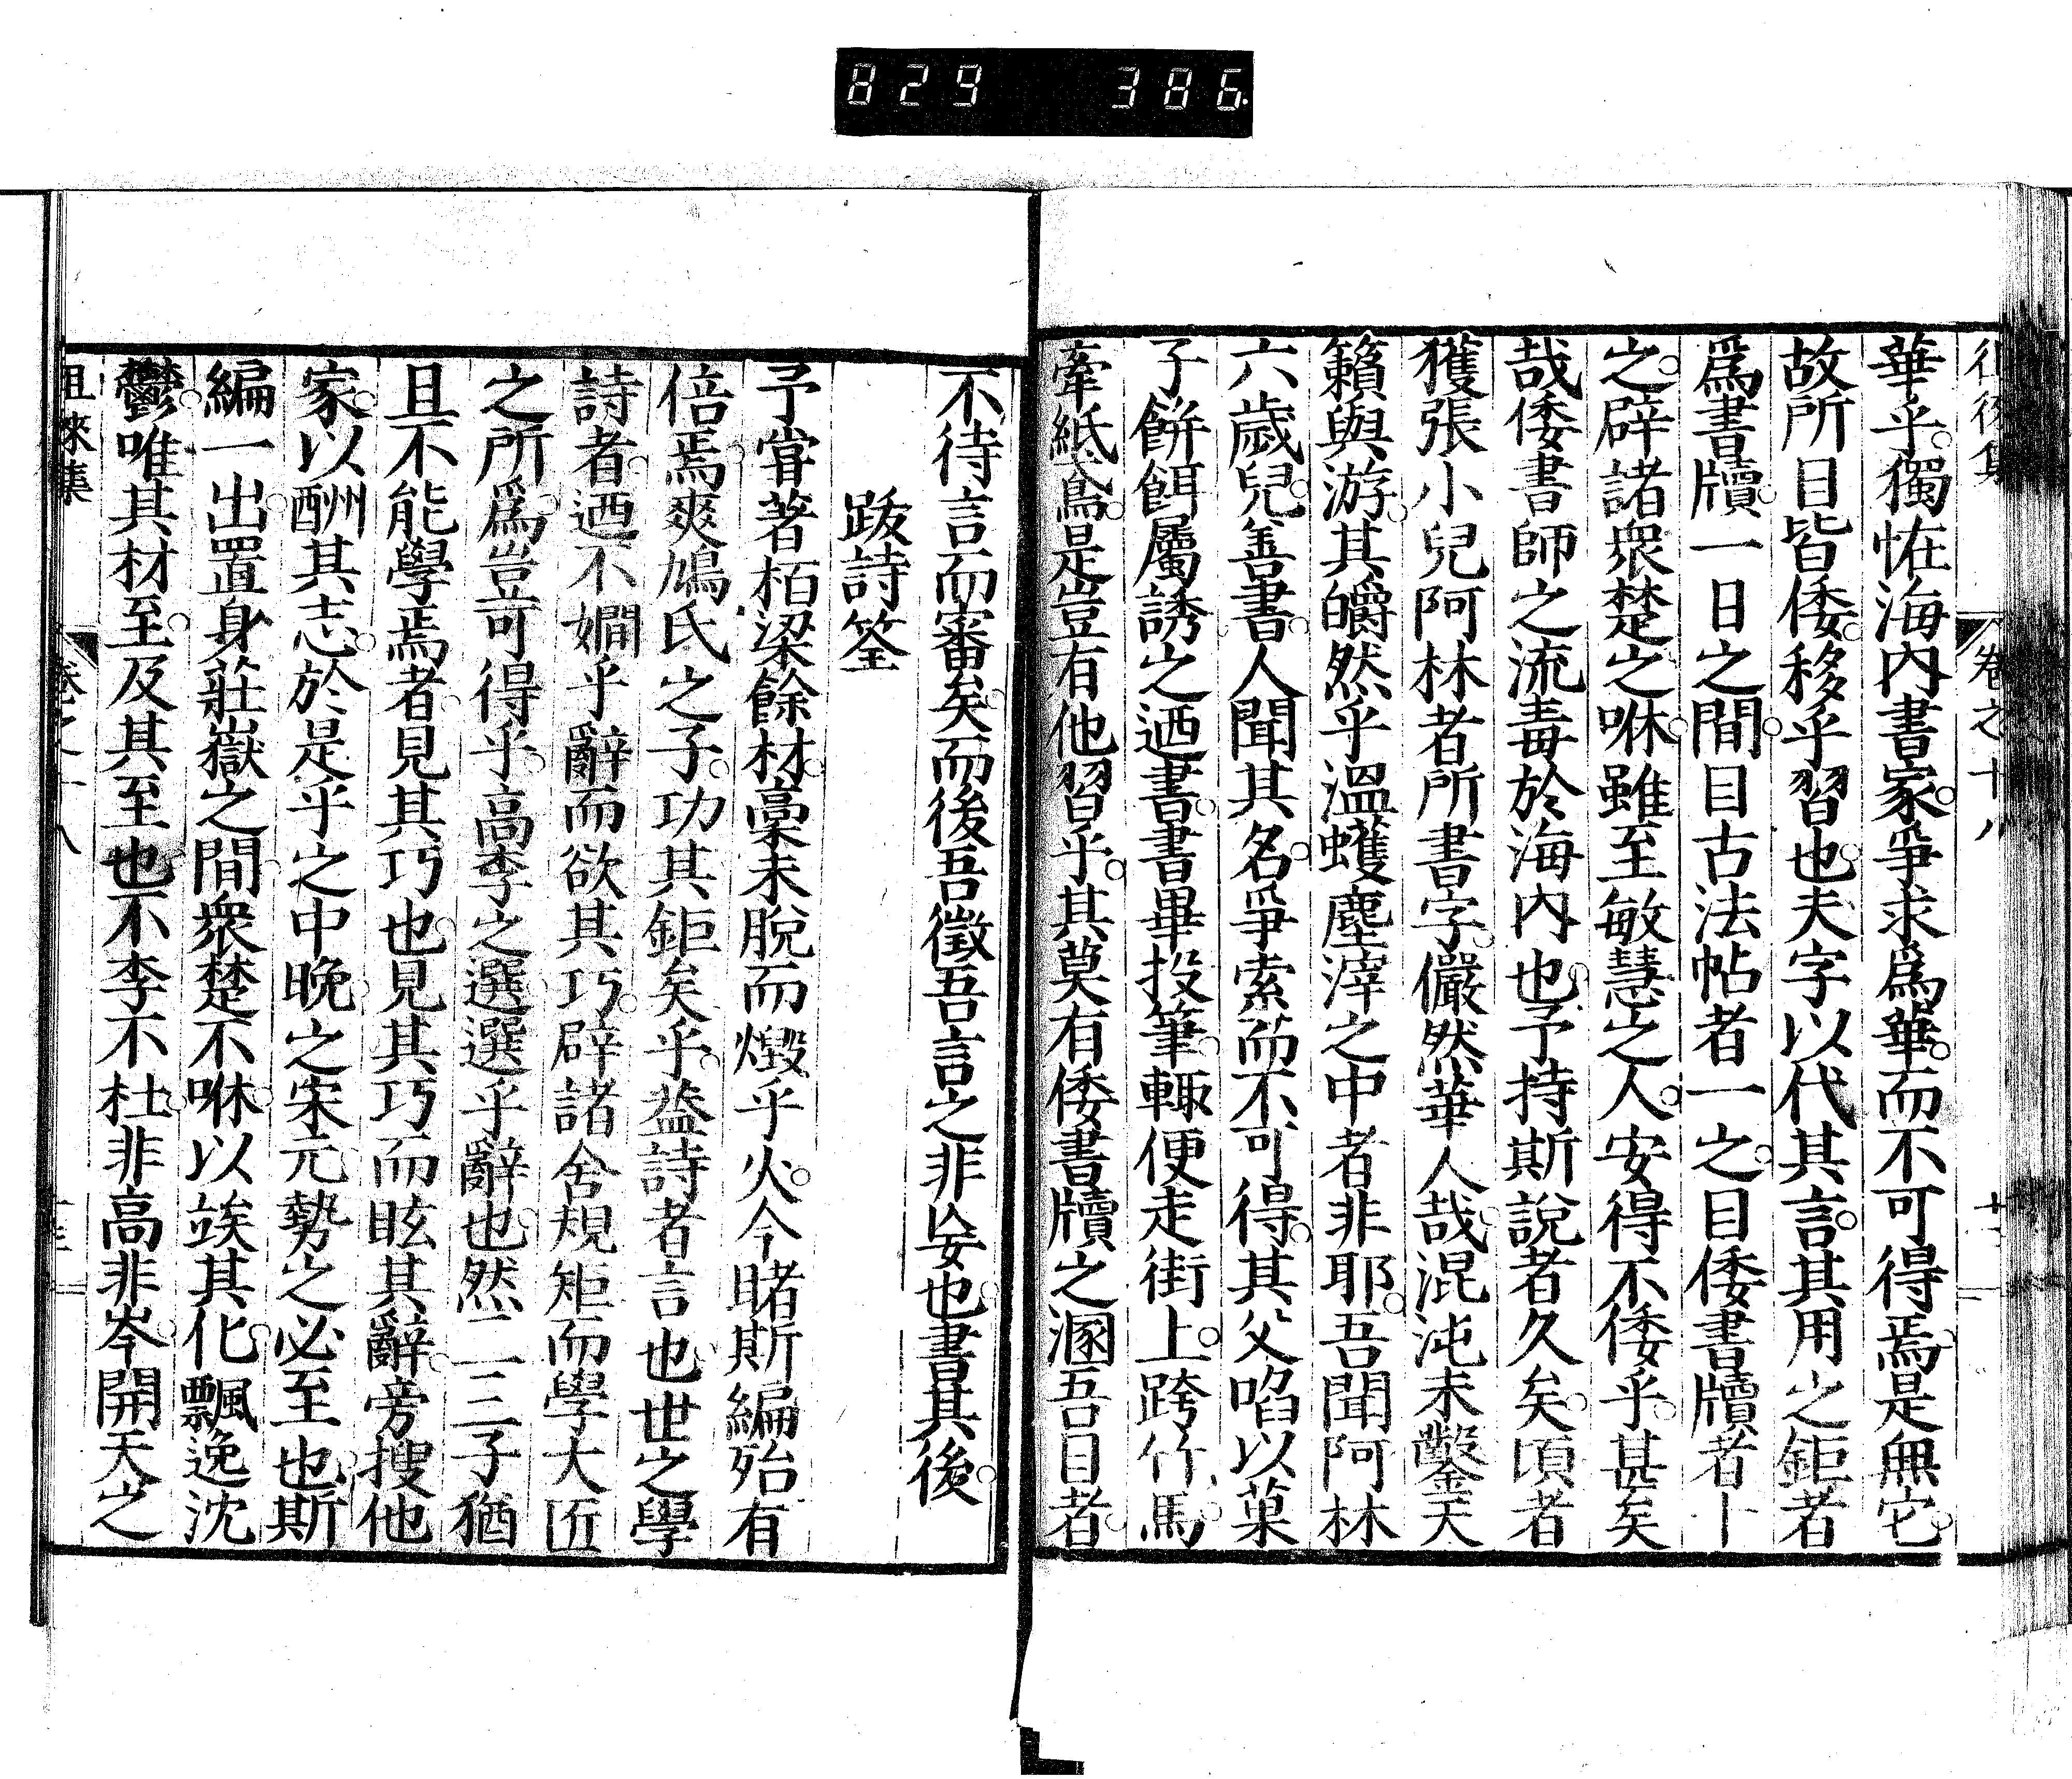 829 386.
華乎。獨恠海內書家。爭求爲華。而不可得焉。是無它。
故所目皆倭。移乎習也。夫字以代其言。其用之鉅者
爲書牘。一日之間。目古法帖者一之。目倭書牘者十
之。辟諸衆楚之咻。雖至敏慧之人。安得不倭乎。甚矣
哉倭書師之流毒於海內也。予持斯說者久矣。頃者
獲張小兒阿林者所書字。儼然華人哉。混沌未鑿天
籟與游。其皭然乎溫蠖塵滓之中者非耶。吾聞阿林
六歲兒。善書。人聞其名。爭索而不可得。其父啗以菓
子餠餌屬誘之迺書。書畢投筆。輙便走街上。跨竹馬。
牽紙鳥。是豈有他習乎。其莫有倭書牘之溷吾目者。
不待言而審矣。而後吾徵吾言之非妄也。書其後。
跋詩筌
予甞著栢梁餘材。藁未脫而燬乎火。今睹斯編殆有
倍焉。爽鳩氏之子。功其鉅矣乎。葢詩者言也。世之學
詩者。迺不嫺乎辭而欲其巧。辟諸舍規矩而學大匠
之所爲。豈可得乎。高李之選。選乎辭也。然二三子猶
且不能學焉者。見其巧也。見其巧而眩其辭。旁搜他
家。以酬其志。於是乎之中晚之宋元。勢之必至也。斯
編一出。置身莊嶽之間。衆楚不咻。以竢其化。飄逸沈
鬱。唯其材至。及其至也。不李不杜。非高非岑。開天之
徂徠集 卷之十八